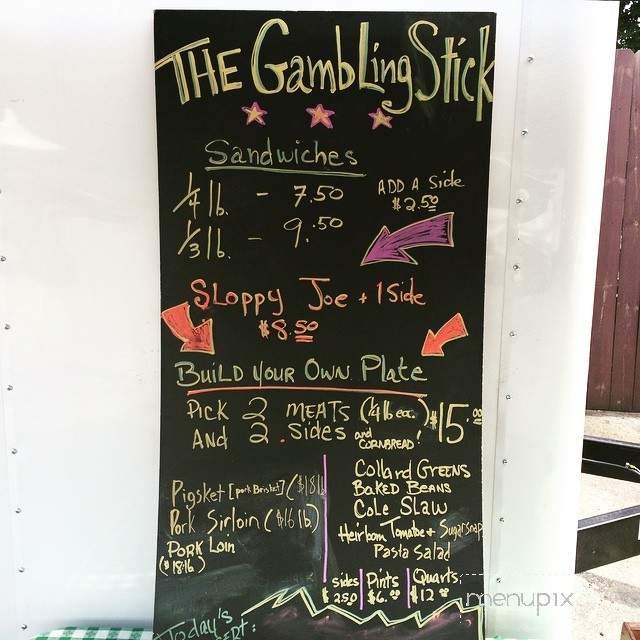 The GambLing Stick
Sandwiches
1/4 lb. - 7.50
ADD A Side
$2.50
1/3 lb. - 9.50
SLoppy Joe + 1 Side
$8.50
BuiLD your Own Plate
Pick 2 meats (1/4 lb ea.) $15.00
And 2 sides and CORNBREAD!
Pigsket [pork Brisket] ($18 lb
Pork Sirloin ($16 lb.)
Pork Loin
($18 lb)
Collard Greens
Baked Beans
Cole Slaw
Heirloom Tomatoe + Sugarsnap
Pasta Salad
Sides $2.50
Pints $6.00
Quarts $12.00
Today's
menupix